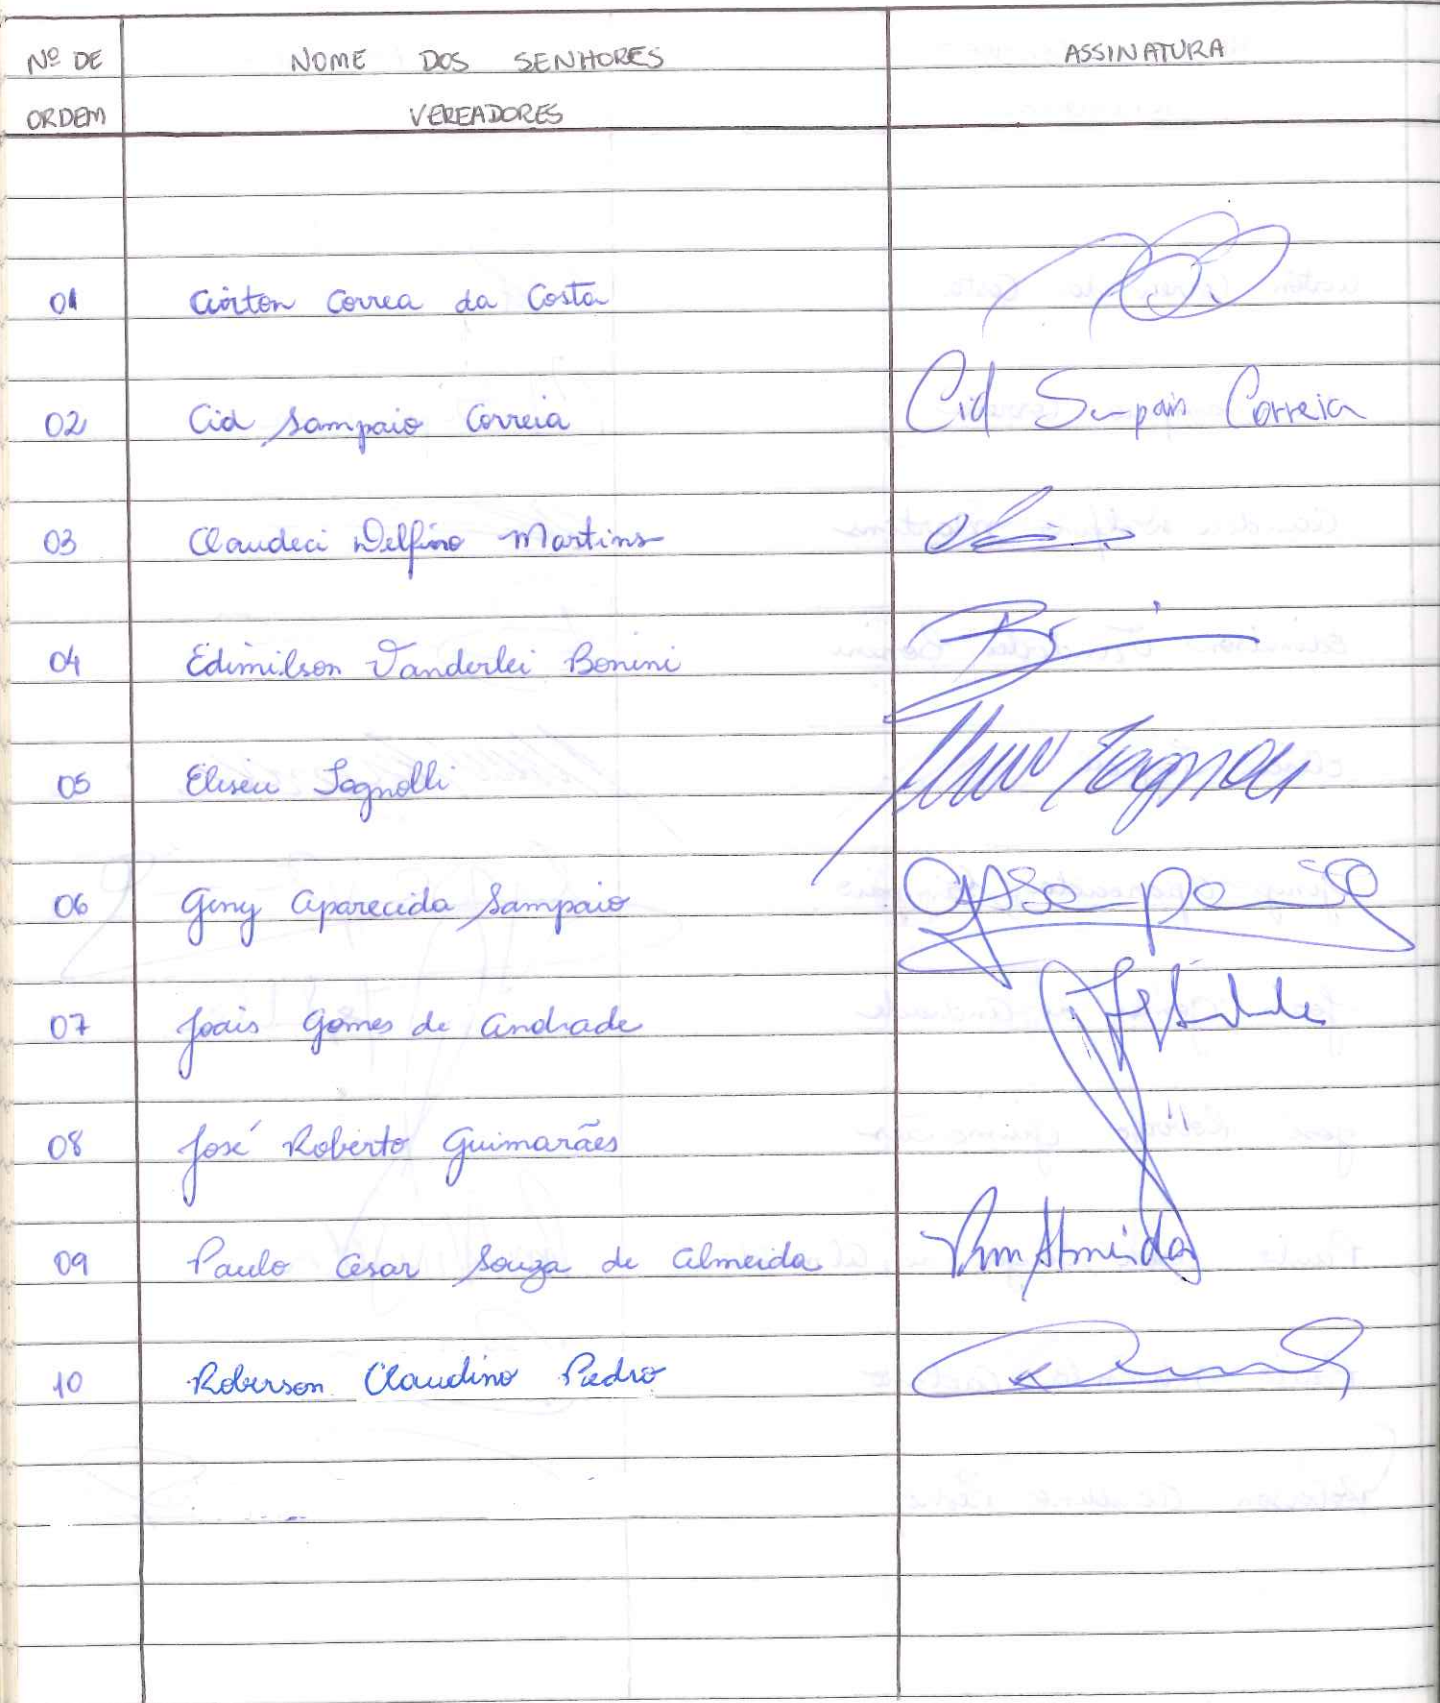 Nº DE NOME DOS SENHORES ASSINATURA
ORDEM VEREADORES
01 Airton Correa da Costa
02 Cid Sampaio Correia Cid Sampaio Correia
03 Claudeci Delfino Martins
04 Edimilson Vanderlei Bonini
05 Eliseu Fagnolli
06 Geny Aparecida Sampaio
07 Joais Gomes de Andrade
08 José Roberto Guimarães
09 Paulo Cesar Souza de Almeida Almeida
10 Roberson Claudino Pedro